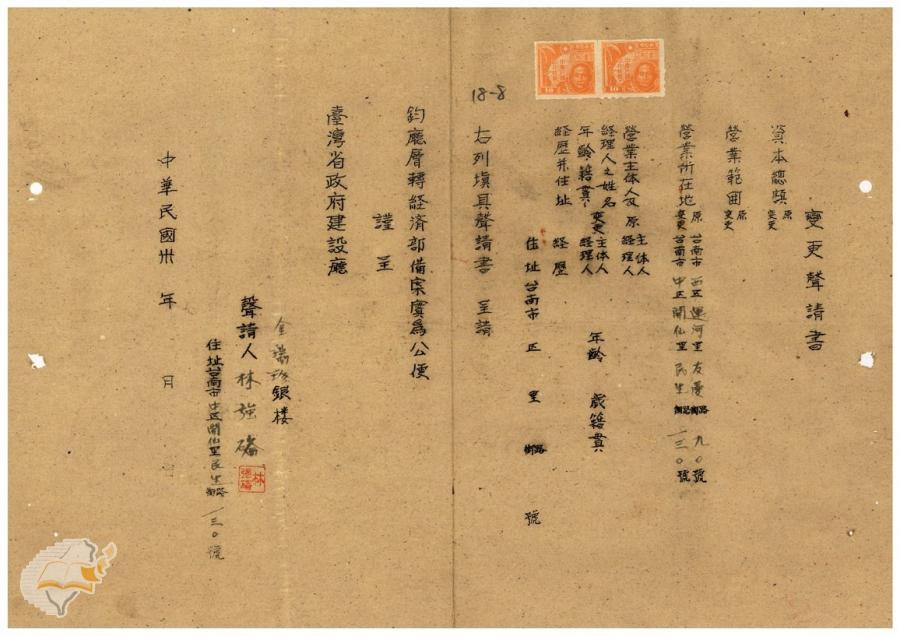 變更聲請書
資本總額 原 變更
營業範囲 原 變更
營業所在地 原 台南市 西区 運河里 友愛 街路 九〇號
變更 台南市 中区 開仙里 民生 街路 一三〇號
營業主体人及 原 主体人
經理人之姓名 經理人
年齡籍貫 變更 主体人 年齡 歲籍貫
經理人
経歷并住址 経歷
住址台南市 区 里 街路 號
18-8
右列填具聲請書 呈請
鈞廳層轉経済部備案實為公便
謹呈
臺灣省政府建設廳
金瑞珍銀楼
聲請人 林強磻
林
强磻
住址台南市中区開仙里民生街路一三〇號
中華民國卅 年 月